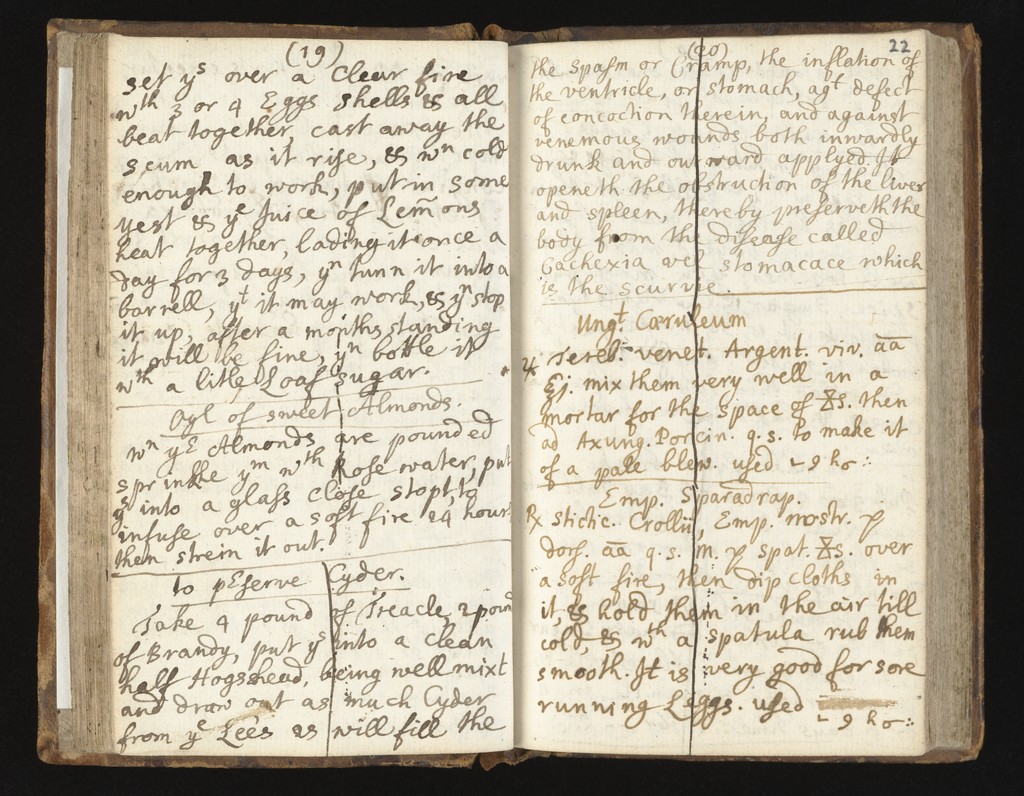 (19)
set yˢ over a Clear fire
wᵗʰ 3 or 4 Eggs shells & all
beat together, cast away the
scum as it rise, & wⁿ cold
enough to work, put in some
yest & yᵉ Juice of Lem̃ons
beat together, lading it once a
day for 3 days, yⁿ tunn it into a
barrell, yᵗ it may work, & yⁿ stop
it up, after a months standing
it will be fine, yⁿ bottle it
wᵗʰ a litle Loaf sugar.
Oyl of sweet Almonds.
wⁿ yᴱ Almonds are pounded
sprinkle yᵐ wᵗʰ Rose water, put
yᵐ into a glass close stopt to
infuse over a soft fire 24 hours
then strein it out.
to pEserve Cyder.
Take 4 pound of Treacle, 2 poun
of Brandy, put yˢ into a clean
half Hogshead, being well mixt
and draw out as much Cyder
from yᵉ Lees as will fill the
(20) 22
the Spasm or Cramp, the inflation of
the ventricle, or stomach, agᵗ defect
of concoction therein, and against
venemous wounds both inwardly
drunk and outward applyed. It
openeth the obstruction of the liver
and spleen, thereby preserveth the
body from the disease called
Cachexia vel stomacace which
is the scurvie.
Ungᵗ. Cœruleum
♃ Tereb. venet. Argent. viv. āā
℥j. mix them very well in a
mortar for the space of ⧖s. then
ad Axung. Porcin. q. s. to make it
of a pale blew. used
Emp. Sparadrap.
℞ stictic. Crollii, Emp. nostr. p
dors. āā q. s. m. p spat. ⧖s. over
a soft fire, then dip cloths in
it, & hold them in the air till
cold, & wᵗʰ a spatula rub them
smooth. It is very good for sore
running Leggs. used